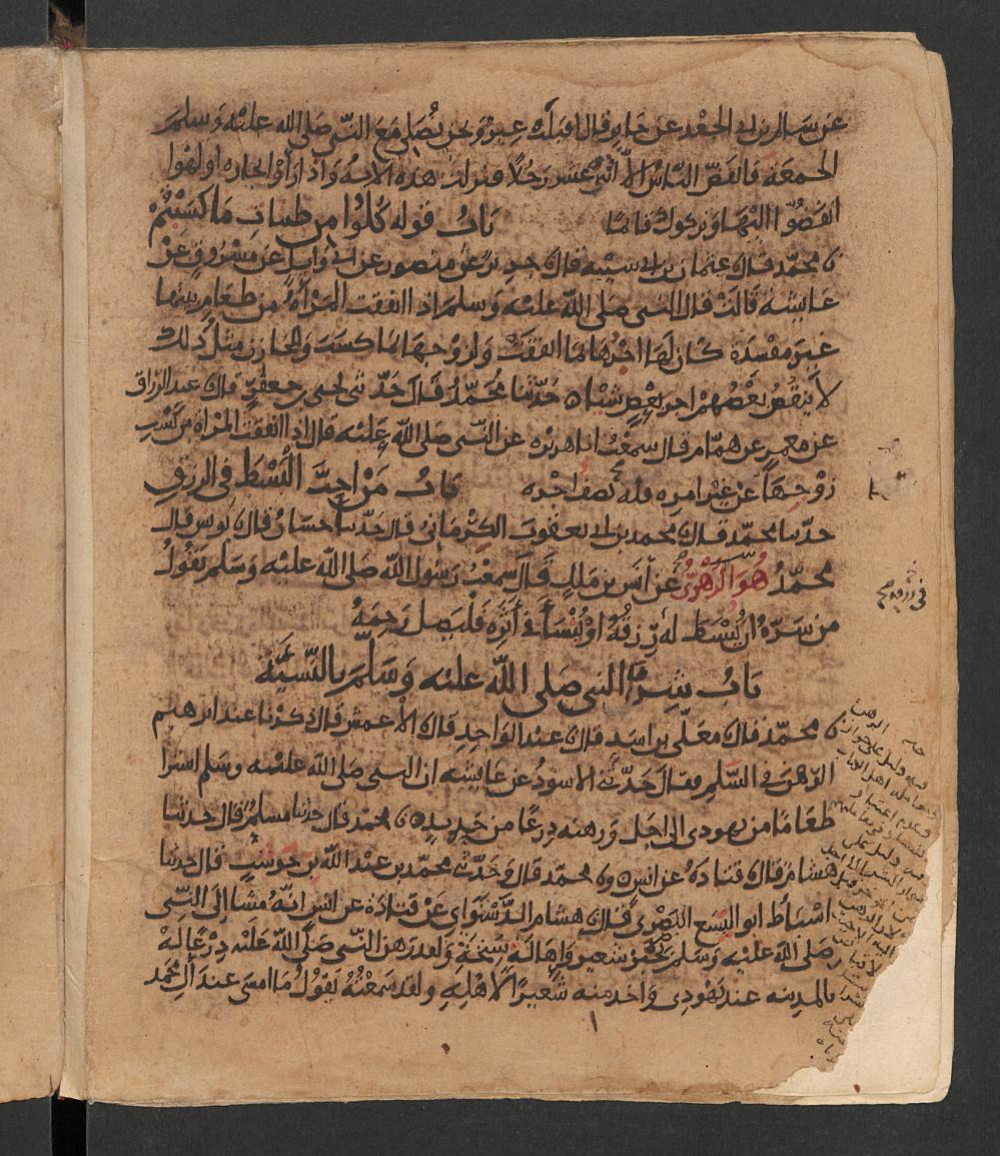 عن سالم بن ابي الجعد عن جابر قال اقبلت عير ونحن نُصلي مَعَ النّبي صَلى الله عليْه وَسَلم
الجمعَة فانفضّ النّاسُ الاّ اثني عَشر رَجُلاً فنزلت هذه الاية وَاذا رَأوْا تجارة او لهْوا
انفَضُّوا اليْهَا وَتركوك قائمًا بَابُ قوله كُلُوا مِن طيبَاتِ مَا كَسَبْتُمْ
ن محمّد قال ن عثمان بن ابي شيْبَة قال ن جرير عن منصور عن ابي وَايل عن مَسْرُوقٍ عَنْ
عَايشة قَالَتْ قال النبي صَلى اللّه عليْه وَسلم اذا انفقت المَرْأةُ من طعَام بيتها
غيرَ مفْسدَة كَان لهَا اجْرُهَا بمَا انفقَتْ وَلزوْجهَا بمَا كسَبَ وَللخازن مثلُ ذَلك
لاَ يَنقُصُ بَعْضُهُمْ اجرَ بَعْضٍ شيْئًا ن حَدّثنا مُحَمّدٌ قَالَ حَدّثني يحيى بن جعفَرٍ قال ن عبد الرزاق
عَن معمر عن همّام قال سمعْتُ ابا هريْرة عن النّبي صَلى اللّه عليْه قال اذا انفقت المرْأة من كَسْبِ
زوْجِهَا عَنْ غيْر امره فله نصف اجْره بَابُ مَنْ احَبَّ الْبَسْطَ في الرزق
حدّثنا محمّد قال ن محمد بن ابي يعقوب الكِرْمَاني قال حَدّثنا حَسّانُ قال ن يونس قال
محمّدٌ هُوَ الزّهْريُّ عَن أنَس بن مَلكٍ قال سمعْتُ رَسُولَ اللّه صَلى الله عليْه وَسَلم يقُولُ
من سَرّهُ ان يُبْسَطَ لهُ رِزقُهُ اوْ يُنْسَأَ في أثَرِهِ فَلْيَصِل رَحِمَهُ
بَابُ شِرَا النبي صَلى اللّه عليْه وَسَلّم بالنّسِيئَة
ن محمّد قال ن مُعَلى بن اسَد قال ن عبْد الوَاحِد قال ن الأعمش قال ذكرْنا عند ابرهيم
الرّهْنَ في السَّلَمِ فقال حَدّثني الأسودُ عن عَايشة ان النبي صَلى الله عليْه وَسَلم اشترا
طعَامًا من يهودي الى اجَل وَرهنه دِرعًا من حَدِيد ن محمد قال حدثنا مسلمٌ قال حدثنا
هشام قال ن قتادَةُ عن انسٍ ن محمد قال وَحَدّثني محمد بن عبْد اللّه بن حَوشَبٍ قال حدثنا
اسْبَاطُ ابو اليَسَع البَصْريّ قال ن هشام الدّسْتَوَاي عَنْ قتادَة عن انس انّهُ مشَا الى النّبي
صَلى اللّه عليْه وَسَلم بخبْز شعير وَاِهَالَةٍ سَنِخَةٍ وَلقد رَهن النّبي صَلى اللّه عَليْه دِرْعًا لهُ
بالمدينه عند يهُودي وَاخذ منه شَعيرًا لاَهْلِهِ ولقد سَمعْتُهُ يَقُولُ مَا امسَى عندَ آلِ محمد